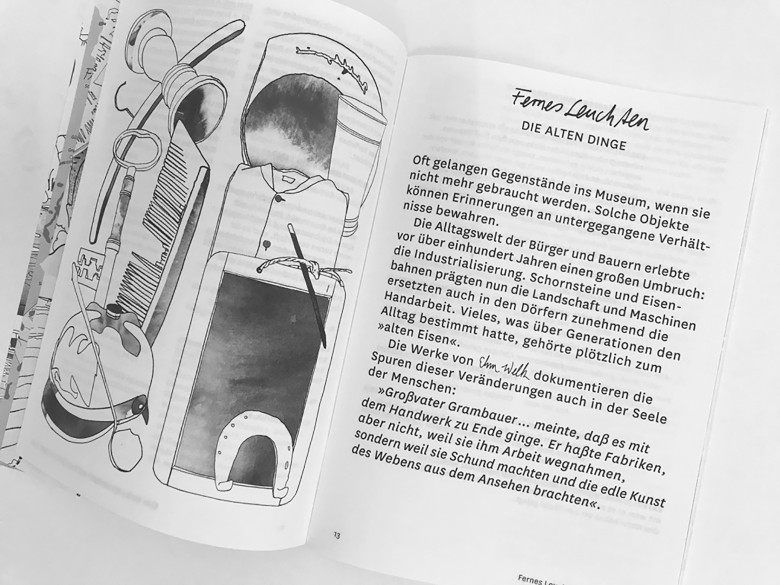 Fernes Leuchten
DIE ALTEN DINGE
Oft gelangen Gegenstände ins Museum, wenn sie
nicht mehr gebraucht werden. Solche Objekte
können Erinnerungen an untergegangene Verhält-
nisse bewahren.
Die Alltagswelt der Bürger und Bauern erlebte
vor über einhundert Jahren einen großen Umbruch:
die Industrialisierung. Schornsteine und Eisen-
bahnen prägten nun die Landschaft und Maschinen
ersetzten auch in den Dörfern zunehmend die
Handarbeit. Vieles, was über Generationen den
Alltag bestimmt hatte, gehörte plötzlich zum
»alten Eisen«.
Die Werke von Ehm Welk dokumentieren die
Spuren dieser Veränderungen auch in der Seele
der Menschen:
»Großvater Grambauer ... meinte, daß es mit
dem Handwerk zu Ende ginge. Er haßte Fabriken,
aber nicht, weil sie ihm Arbeit wegnahmen,
sondern weil sie Schund machten und die edle Kunst
des Webens aus dem Ansehen brachten«.
13
Fernes